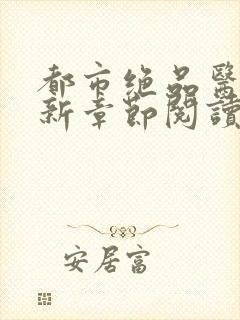 都市绝品醫
新章節閱讀
安居富